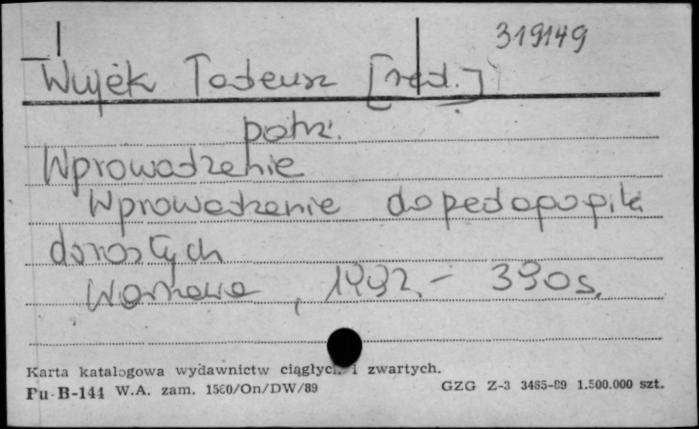 319149
Wujek Tadeusz [red.]
patrz:
Wprowadzenie
Wprowadzenie do pedagogiki
dorosłych
Warszawa, 1992.- 390s.
Karta katalogowa wydawnictw ciągłych i zwartych.
Pu-B-144 W.A. zam. 1560/On/DW/89 GZG Z-3 3485-89 1.500.000 szt.